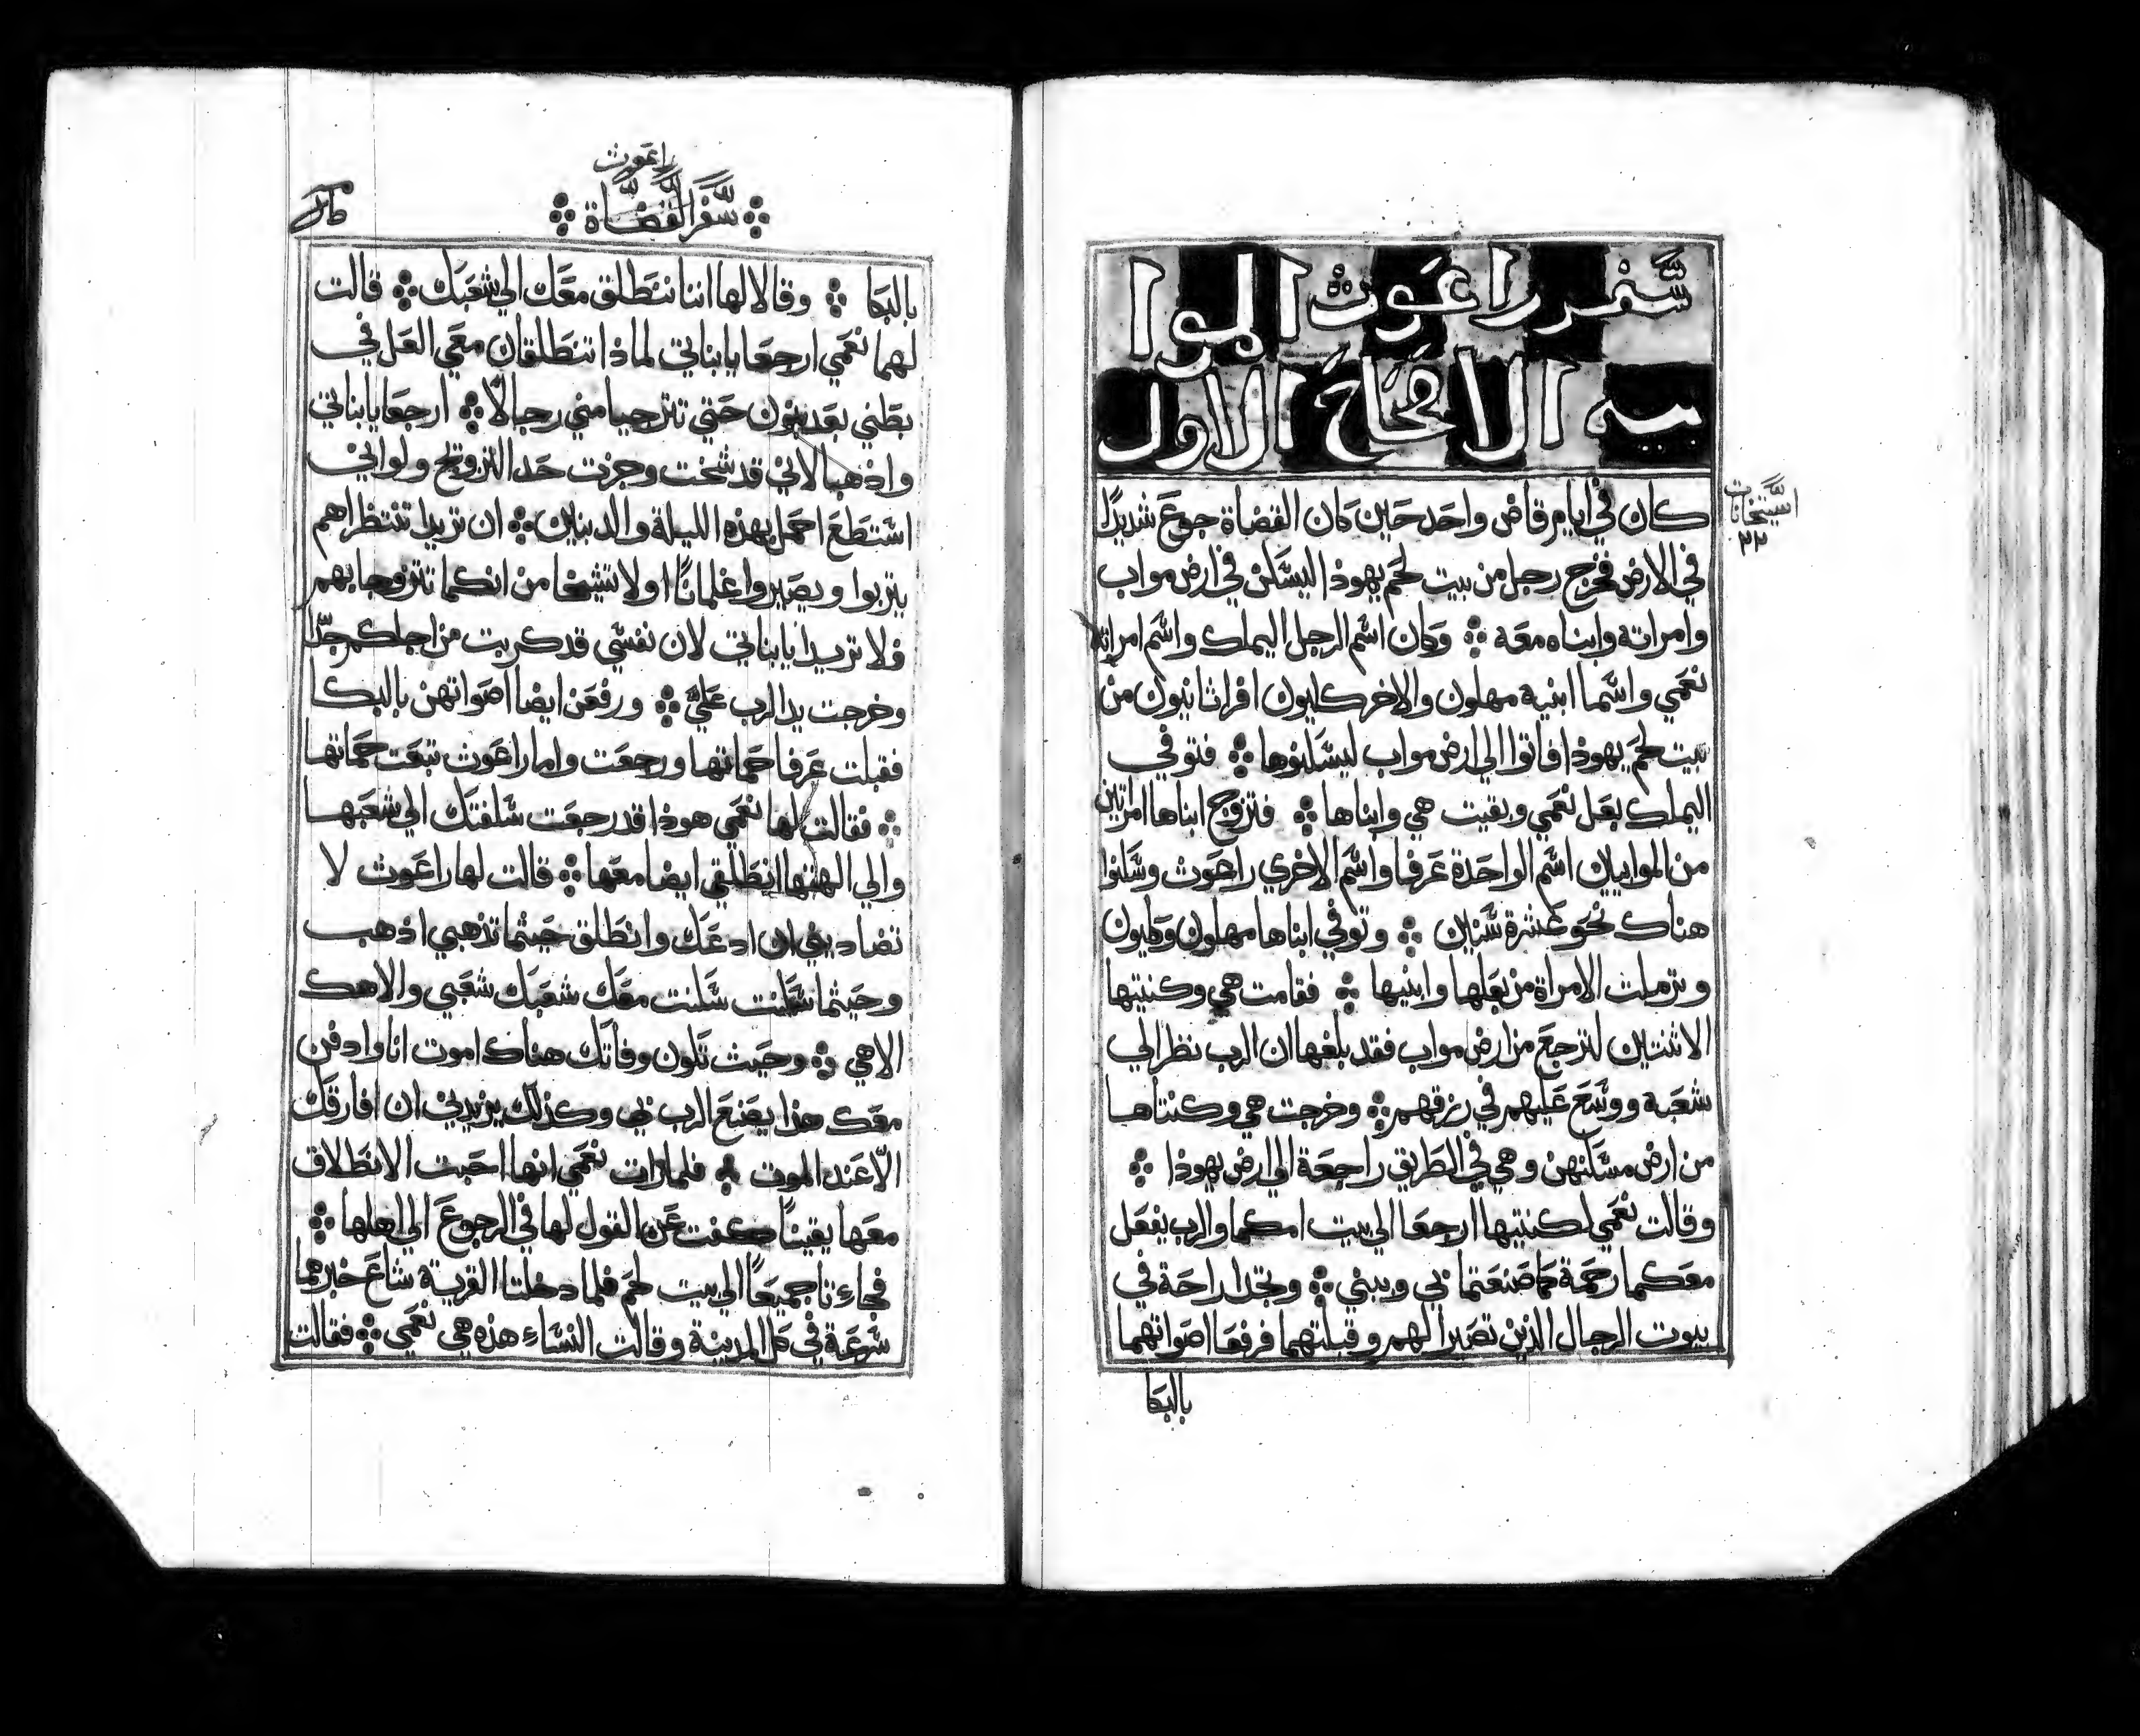 سفر راعوث الموا
بيه الاصحاح الاول
كان في ايام قاض واحد حين كان القضاة جوع شديدًا
في الارض فخرج رجل من بيت لحم يهوذا ليسكن في ارض مواب
وامراته وابناه معه ⁘ وكان اسم الرجل اليملك واسم امراته
نعمي واسما ابنيه مهلون والاخر كليون افراثانيون من
بيت لحم يهوذا فاتوا الي ارض مواب ليسكنوها ⁘ فتوفي
اليملك بعل نعمي وبقيت هي وابناها ⁘ فتزوج ابناها امراتين
من الموابيين اسم الواحدة عرفا واسم الاخري راعوث وسكنوا
هناك نحو عشرة سنين ⁘ وتوفي ابناها مهلون وكليون
وترملت الامراة من بعلها وابنيها ⁘ فقامت هي وكنتيها
الاثنتين لترجع من ارض مواب فقد بلغها ان الرب نظر الي
شعبه ووسع عليهم في رزقهم ⁘ وخرجت هي وكنتاها
من ارض مسكنهن وهي في الطريق راجعة الي ارض يهوذا ⁘
وقالت نعمي لكنتيها ارجعا الي بيت امكما والرب يفعل
معكما رحمة كما صنعتما بي وببني ⁘ وتجدا راحة في
بيوت الرجال الذين تصيرا لهم وقبلتهما فرفعا اصواتهما
بالبكا
راعوث
⁘ سفر القضاة ⁘
بالبكا ⁘ وقالا لها اننا ننطلق معك الي شعبك ⁘ قالت
لهما نعمي ارجعا يا بناتي لماذا تنطلقان معي العل في
بطني بعد بنون حتي تترجيا مني رجالًا ⁘ ارجعا يا بناتي
واذهبا لاني قد شخت وجزت حد التزويج ولو اني
استطع احمل بهذه الليلة والد بنين ⁘ ان تريدا تنتظراهم
يتربوا ويصيروا غلمانًا اولا تشيخا من انكما تتزوجا بهم
فلا تريدا يا بناتي لان نفسي قد كربت من اجلكم جدًا
وخرجت يد الرب علي ⁘ ورفعن ايضا اصواتهن بالبكا
فقبلت عرفا حماتها ورجعت واما راعوث تبعت حماتها
⁘ فقالت لها نعمي هوذا قد رجعت سلفتك الي شعبها
والي الهتها انطلقي ايضا معها ⁘ قالت لها راعوث لا
تضاديني ان ادعك وانطلق حيثما تذهبي اذهب
وحيثما سكنت سكنت معك شعبك شعبي والاهك
الاهي ⁘ وحيث تكون وفاتك هناك اموت انا وادفن
معك هذا يصنع الرب بي وكذلك يزيدني ان افارقك
الّا عند الموت ⁘ فلما رات نعمي انها احبت الانطلاق
معها يقينًا كفت عن القول لها في الرجوع الي اهلها ⁘
فجاءتا جميعًا الي بيت لحم فلما دخلتا القرية شاع خبرهما
سرعة في كل المدينة وقالت النساء هذه هي نعمي ⁘ فقالت